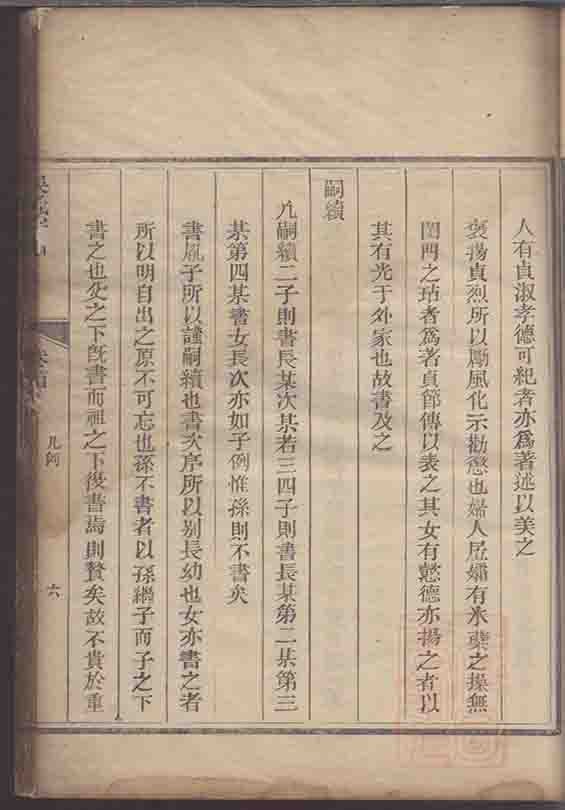 人有貞淑孝德可紀者亦爲著述以美之
褒揚貞烈所以勵風化示勸懲也婦人居孀有氷蘗之操無
閨門之玷者爲著貞節傳以表之其女有懿德亦揚之者以
其有光于外家也故書及之
嗣續
凡嗣續二子則書長某次某若三四子則書長某第二某第三
某第四某書女長次亦如子例惟孫則不書矣
書胤子所以謹嗣續也書次序所以别長幼也女亦書之者
所以明自出之原不可忘也孫不書者以孫繼子而子之下
書之也父之下旣書而祖之下復書焉則贅矣故不貴於重
凡例
六